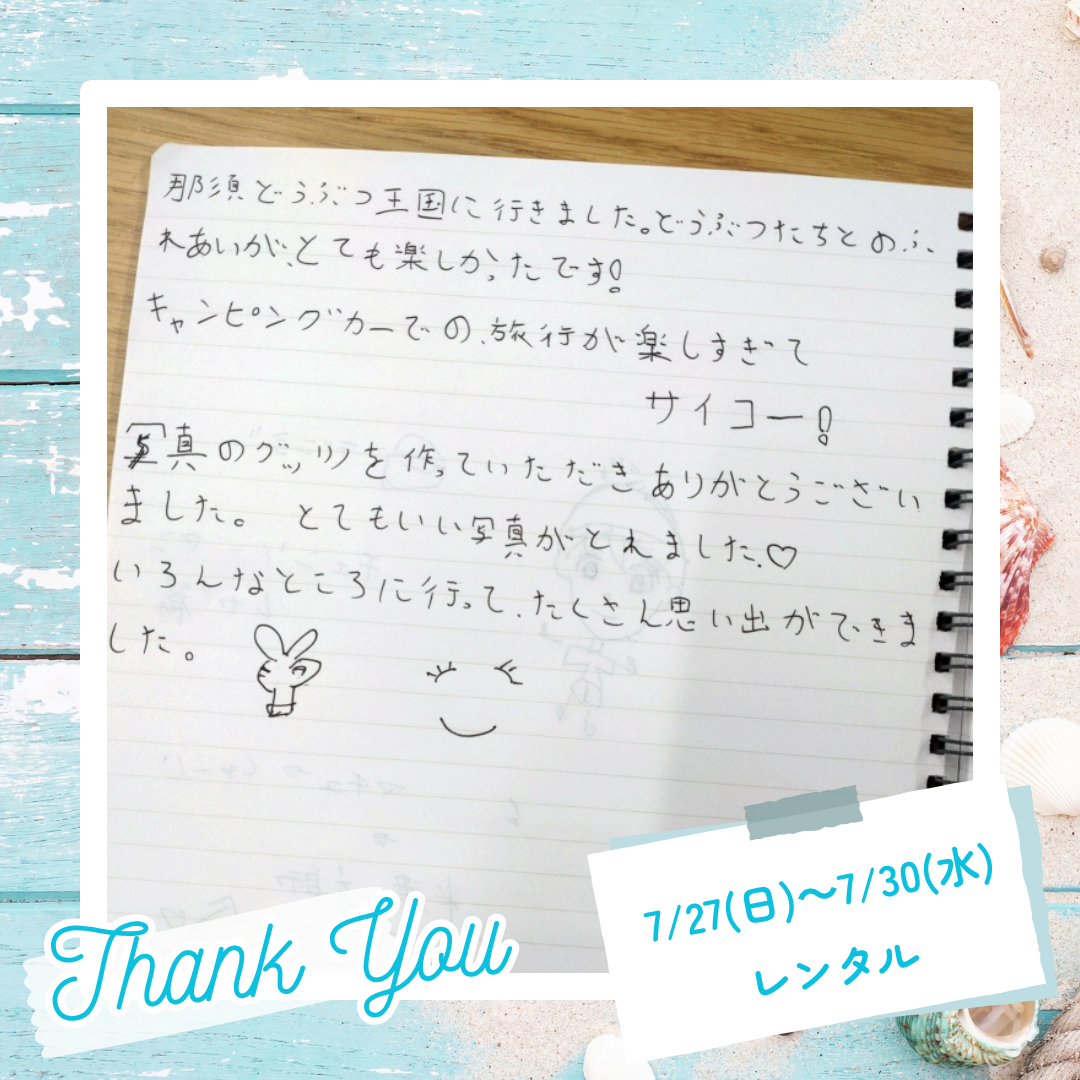 那須どうぶつ王国に行きました。どうぶつたちとのふ
れあいが、とても楽しかったです!
キャンピングカーでの、旅行が楽しすぎて
サイコー!
写真のグッツを作っていただきありがとうござい
ました。 とてもいい写真がとれました。♡
いろんなところに行って、たくさん思い出ができま
した。
Thank You
7/27(日)~7/30(水)
レンタル